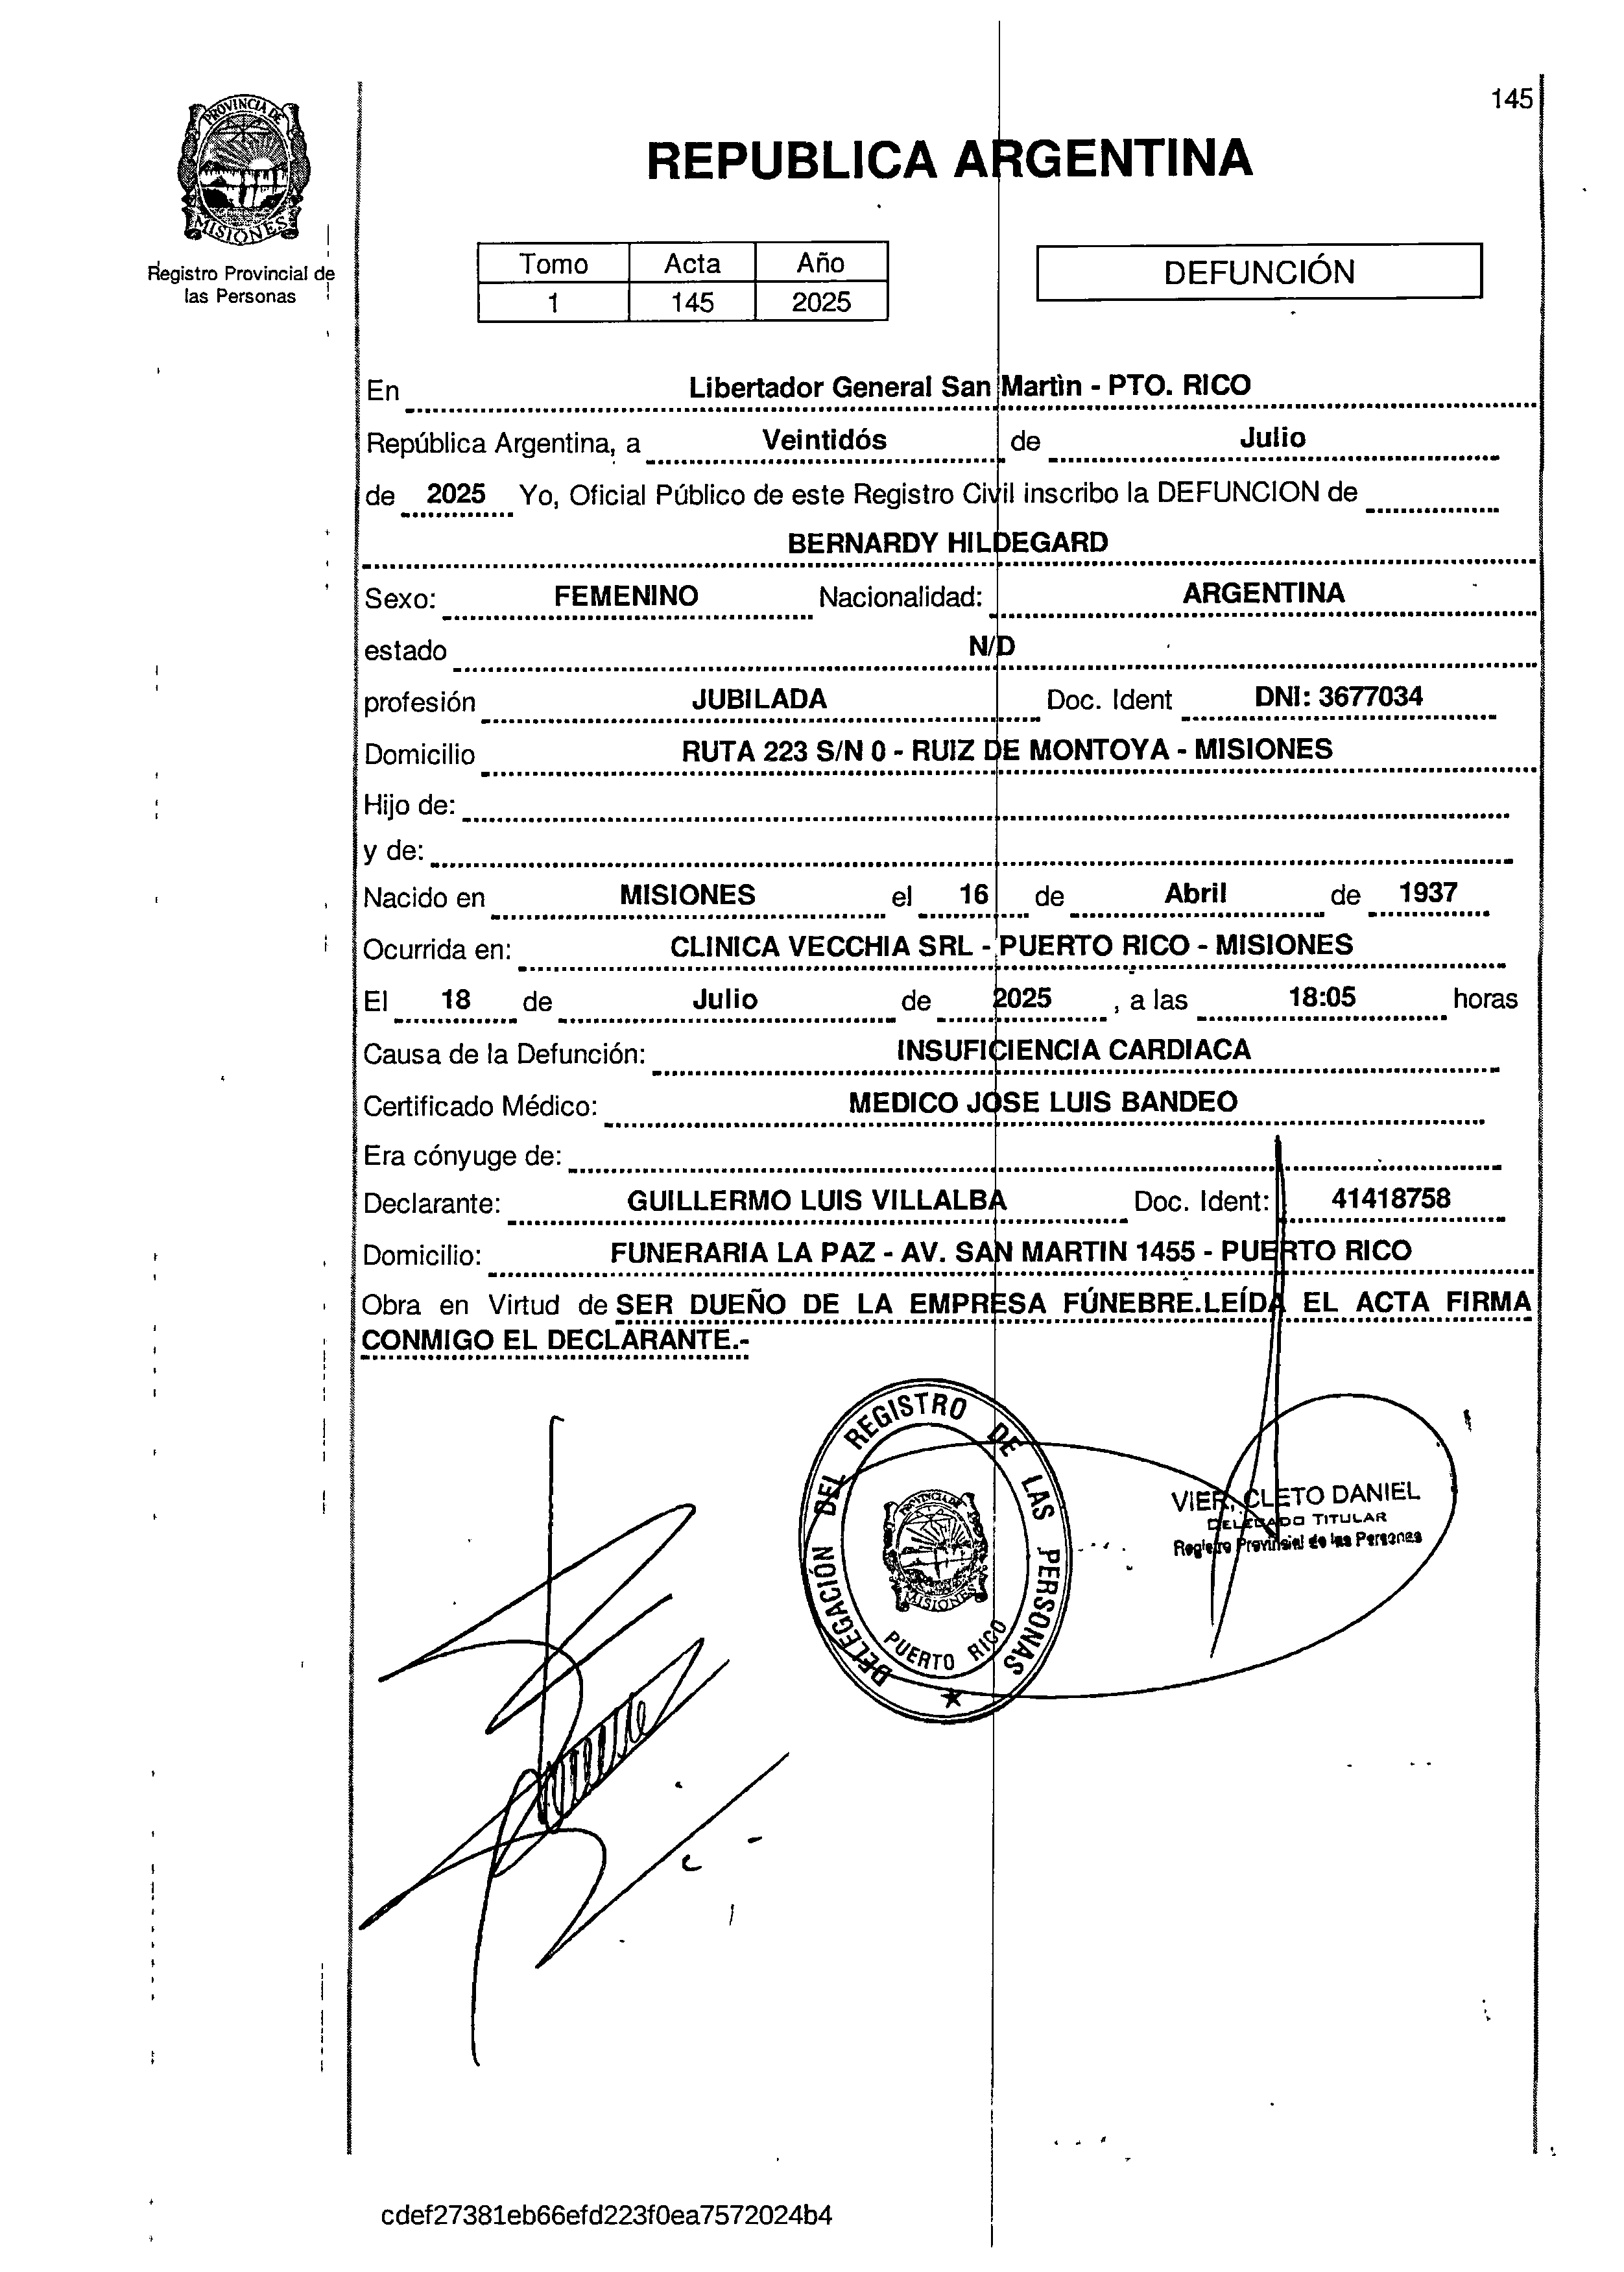 145
PROVINCIA DE
MISIONES
Registro Provincial de
las Personas
REPUBLICA ARGENTINA
Tomo Acta Año
1 145 2025
DEFUNCIÓN
En Libertador General San Martìn - PTO. RICO
República Argentina, a Veintidós de Julio
de 2025 Yo, Oficial Público de este Registro Civil inscribo la DEFUNCION de
BERNARDY HILDEGARD
Sexo: FEMENINO Nacionalidad: ARGENTINA
estado N/D
profesión JUBILADA Doc. Ident DNI: 3677034
Domicilio RUTA 223 S/N 0 - RUIZ DE MONTOYA - MISIONES
Hijo de:
y de:
Nacido en MISIONES el 16 de Abril de 1937
Ocurrida en: CLINICA VECCHIA SRL - PUERTO RICO - MISIONES
El 18 de Julio de 2025 , a las 18:05 horas
Causa de la Defunción: INSUFICIENCIA CARDIACA
Certificado Médico: MEDICO JOSE LUIS BANDEO
Era cónyuge de:
Declarante: GUILLERMO LUIS VILLALBA Doc. Ident: 41418758
Domicilio: FUNERARIA LA PAZ - AV. SAN MARTIN 1455 - PUERTO RICO
Obra en Virtud de SER DUEÑO DE LA EMPRESA FÚNEBRE.LEÍDA EL ACTA FIRMA
CONMIGO EL DECLARANTE.-
DELEGACIÓN DEL REGISTRO DE LAS PERSONAS
PROVINCIA DE
MISIONES
PUERTO RICO
VIER, CLETO DANIEL
DELEGADO TITULAR
Registro Provincial de las Personas
cdef27381eb66efd223f0ea7572024b4